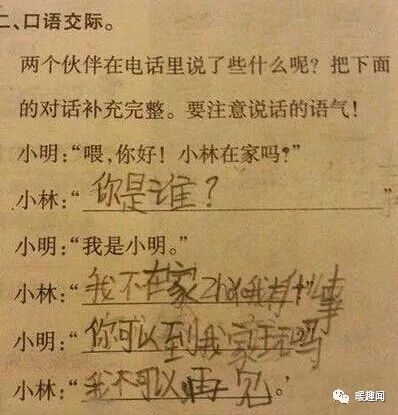 二、口语交际。
两个伙伴在电话里说了些什么呢?把下面
的对话补充完整。要注意说话的语气!
小明:“喂,你好!小林在家吗?”
小林:“你是谁?”
小明:“我是小明。”
小林:“我不在家 找我有什事
小明:“你可以到我家玩吗
小林:“我不可以再见。”
暖趣闻